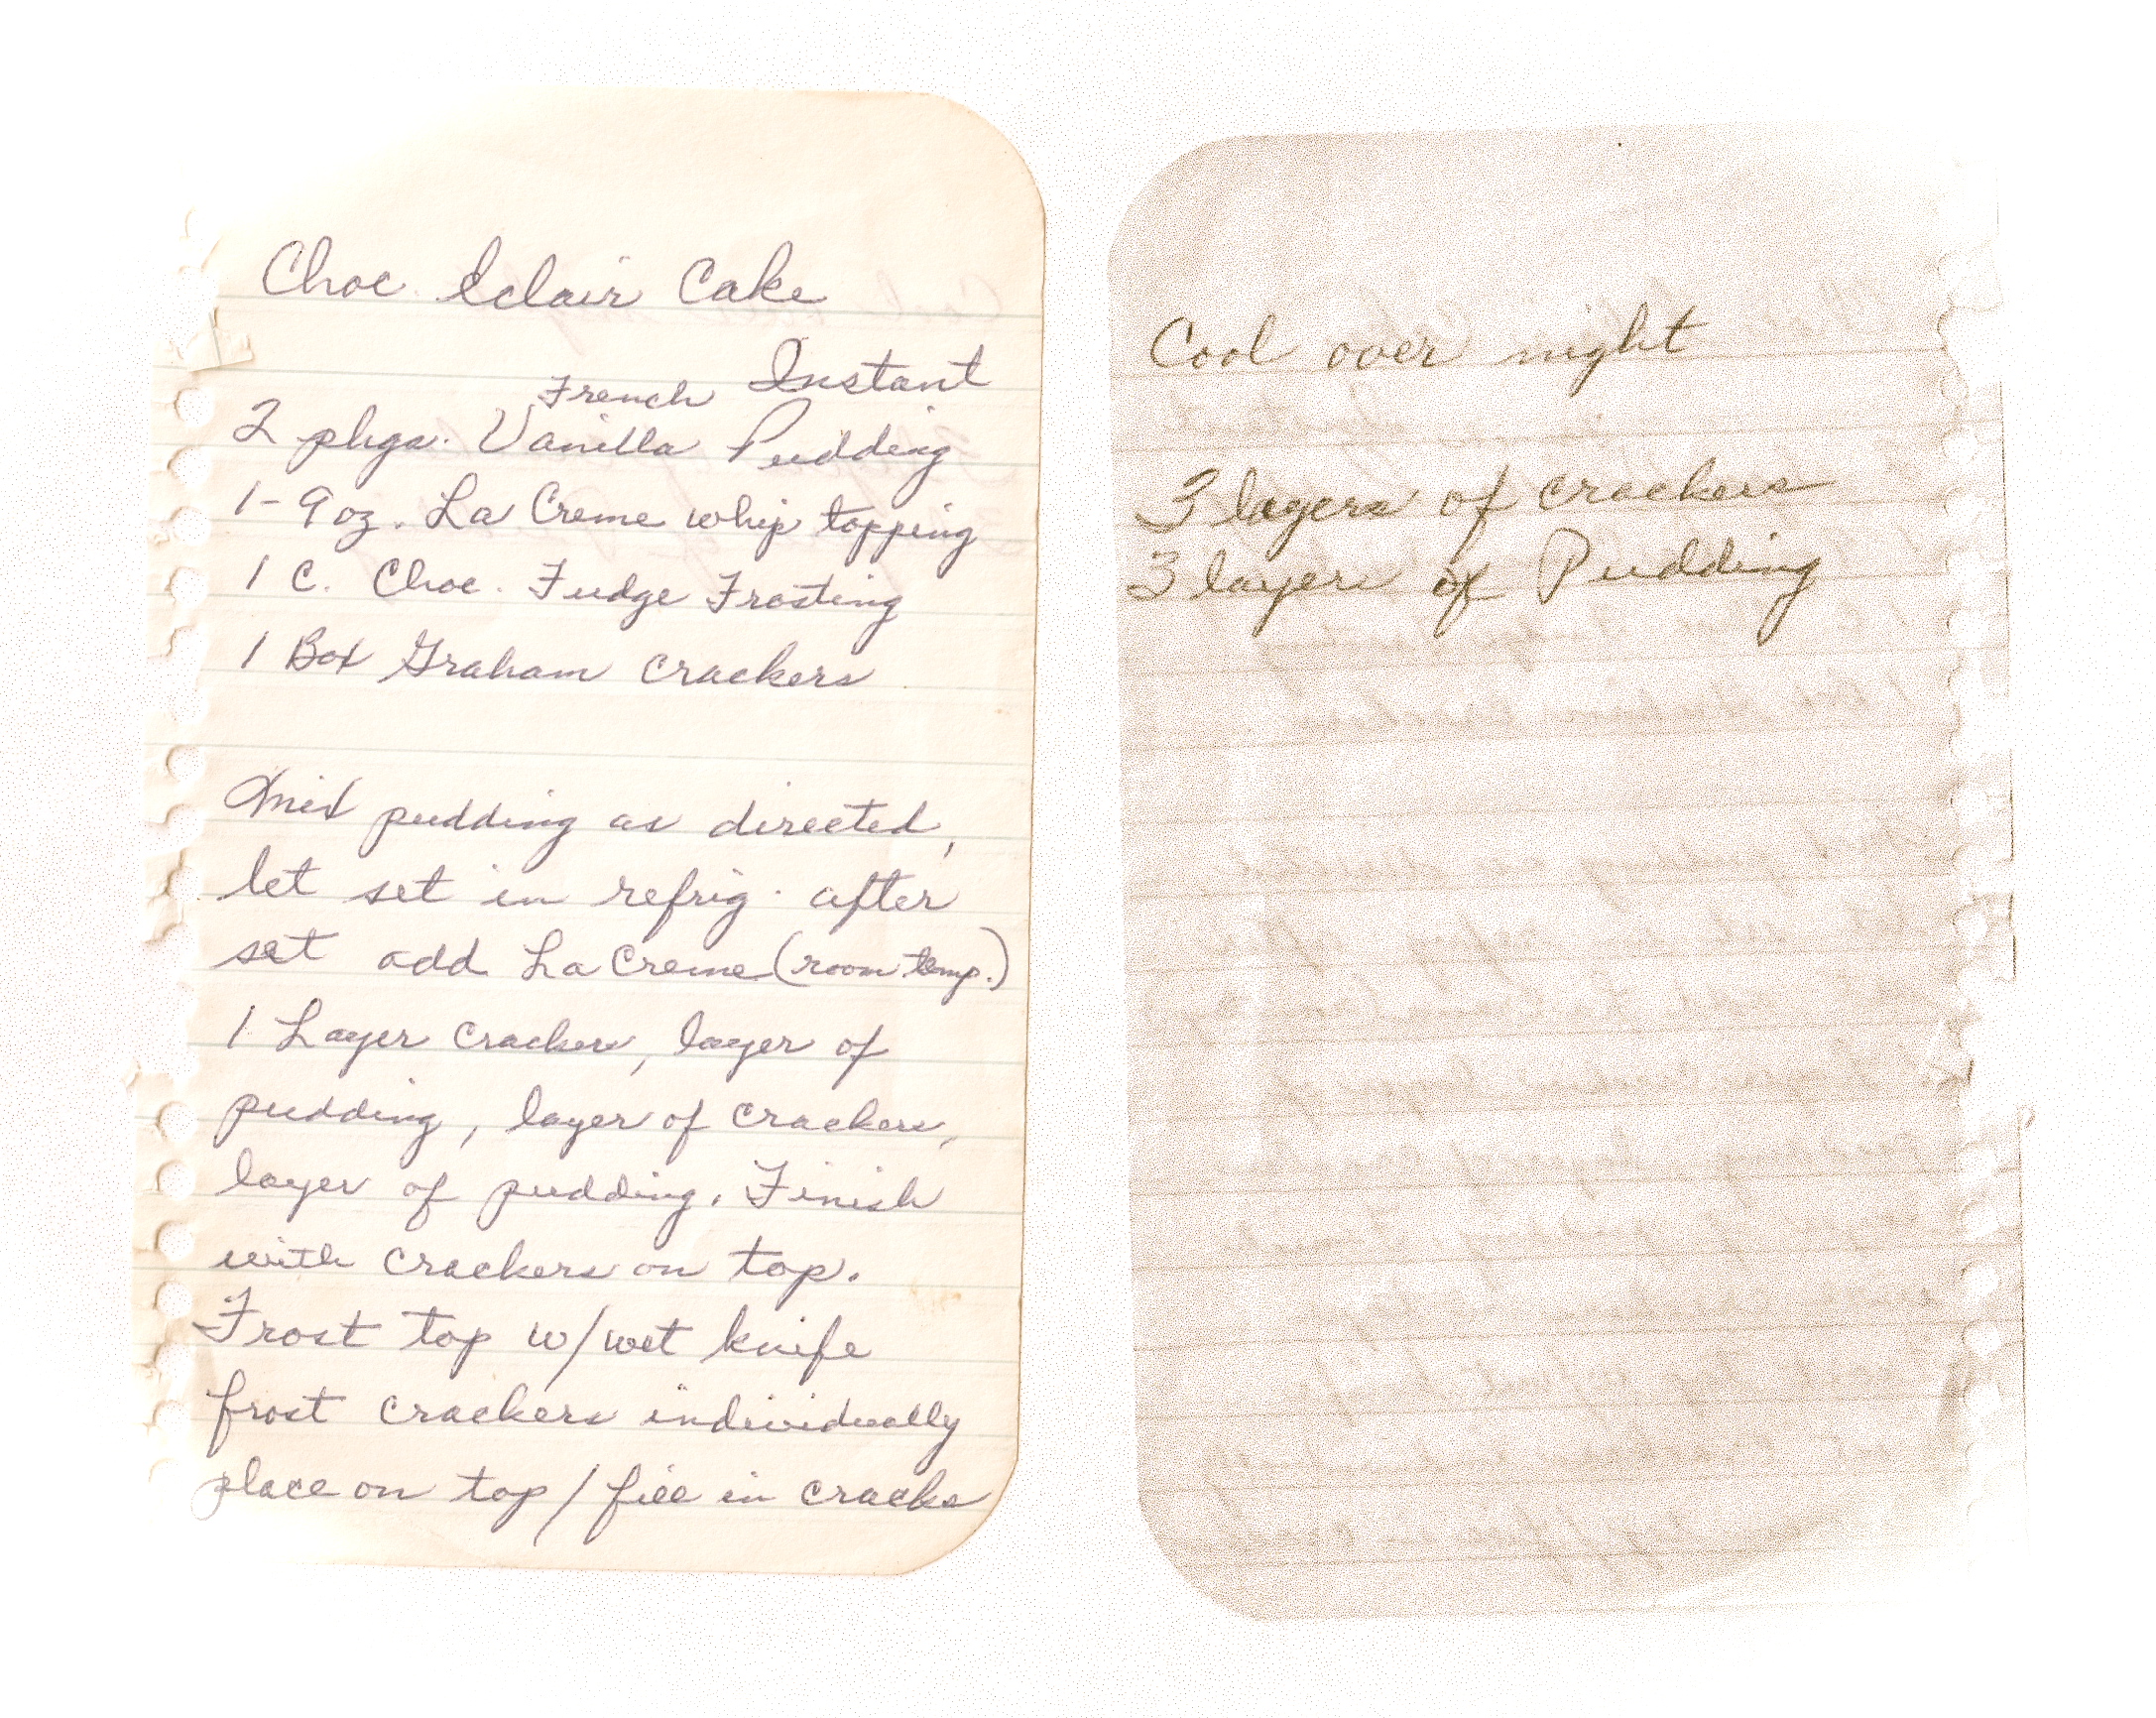 Choc Eclair Cake
French Instant
2 pkgs. Vanilla Pudding
1-9 oz. La Creme whip topping
1 C. Choc. Fudge Frosting
1 Box Graham Crackers
Mix pudding as directed,
let set in refrig. after
set add La Creme (room temp.)
1 Layer Crackers, layer of
pudding, layer of crackers,
layer of pudding. Finish
with crackers on top.
Frost top w/wet knife
frost crackers individually
place on top / fill in cracks
Cool over night
3 layers of crackers
3 layers of Pudding